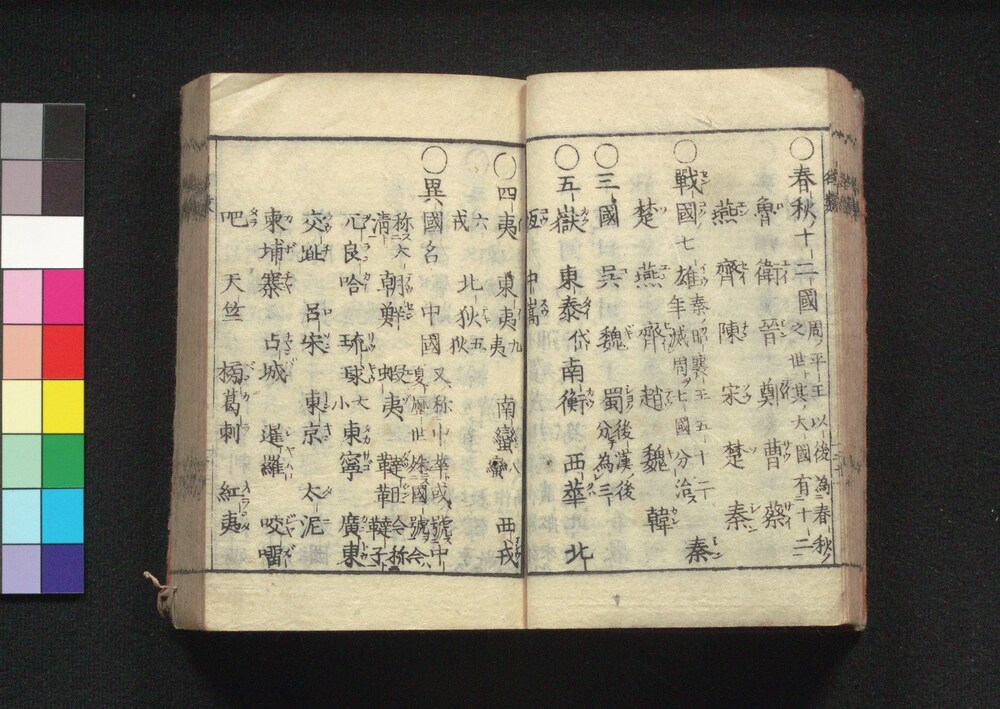 〇春秋十二國 周ノ平王以後為春秋ノ之世其大國有十二
魯 衛 晉 鄭 曹 蔡
燕 齊 陳 宋 楚 秦
〇戰國七雄 秦昭襄王五十二年滅周ヲ七國分治ス 秦
楚 燕 齊 趙 魏 韓
〇三國 吳 魏 蜀 後漢後分テ為三
〇五嶽 東泰岱 南衡 西華 北
恆 中嵩
〇四夷 東夷九夷 南蠻八蠻 西戎
六戎 北狄五狄
〇異國名 中國 又称中華或號中夏歷世殊國號今
称大清 朝鮮 蝦夷 韃靼今称韃子
兀良哈 琉球大小 東寧 廣東
交趾 呂宋 東京 太泥
柬埔寨 占城 暹羅 咬𠺕
吧 天竺 榜葛剌 紅夷